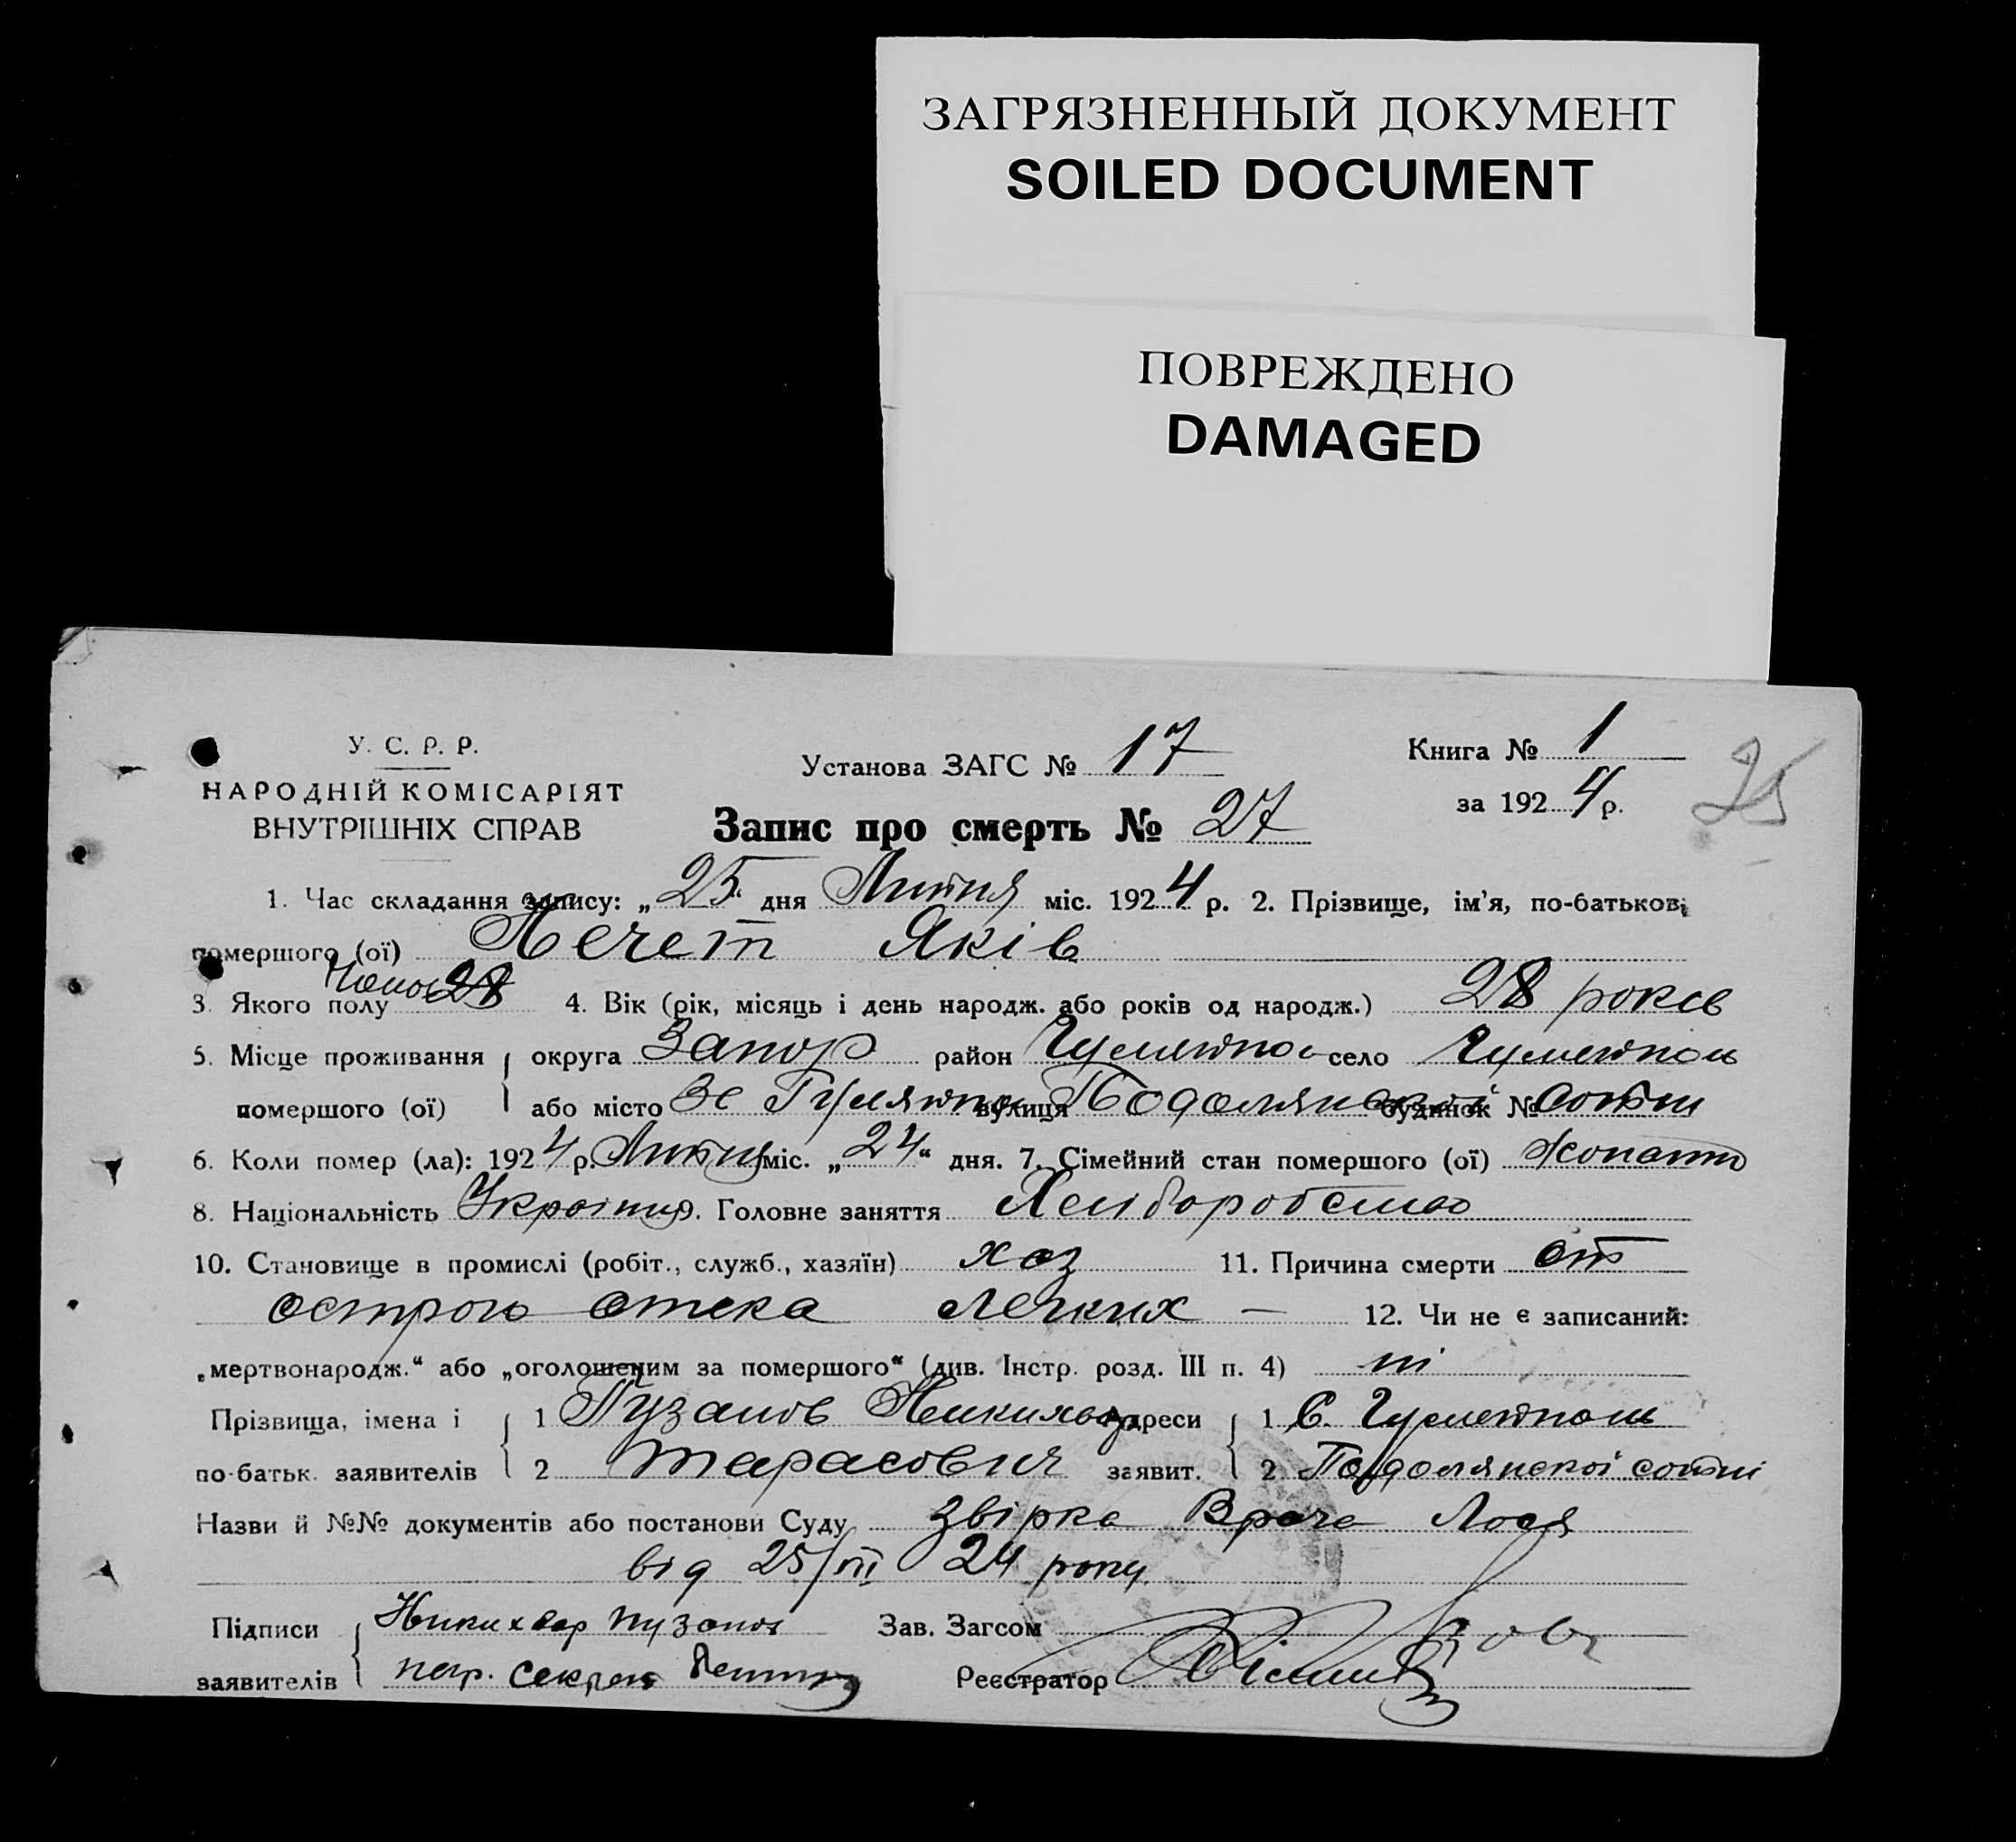 ЗАГРЯЗНЕННЫЙ ДОКУМЕНТ
SOILED DOCUMENT
ПОВРЕЖДЕНО
DAMAGED
У. С. Р. Р.
НАРОДНІЙ КОМІСАРІЯТ
ВНУТРІШНІХ СПРАВ
Установа ЗАГС № 17
Книга № 1
за 1924 р.
25
Запис про смерть № 27
1. Час складання запису: „25“ дня Липня міс. 1924 р. 2. Прізвище, ім'я, по-батькові
помершого (ої) Нечет Яків
3. Якого полу 4. Вік (рік, місяць і день народж. або років од народж.) 28 років
5. Місце проживання округа Запор район село
помершого (ої) або місто вулиця Подолянскої будинок № сотни
6. Коли помер (ла): 1924 р. Липня міс. „24“ дня. 7. Сімейний стан помершого (ої)
8. Національність 9. Головне заняття
10. Становище в промислі (робіт., служб., хазяїн) хаз 11. Причина смерти от
острого отека легких — 12. Чи не є записаний:
„мертвонародж.“ або „оголошеним за помершого“ (див. Інстр. розд. III п. 4) ні
Прізвища, імена і 1 Пузанов адреси 1 С.
по-батьк. заявителів 2 Тарасович заявит. 2 Подолянскої сотні
Назви й №№ документів або постанови Суду Врача
від 25/VII 24 року
Підписи Никихвор Пузанов Зав. Загсом
заявителів Реєстратор